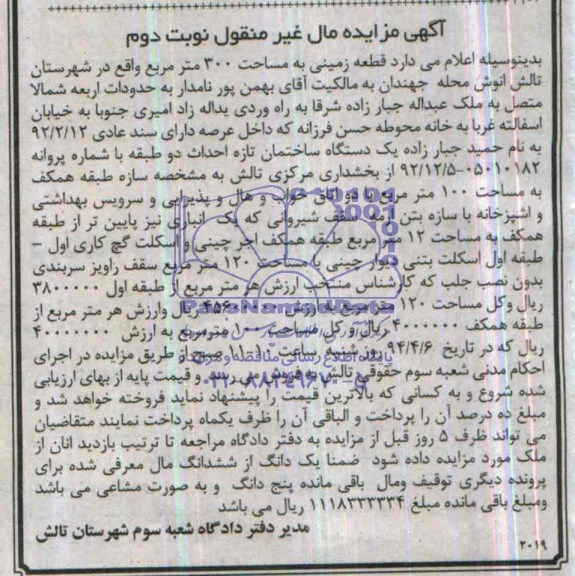 آگهی مزایده مال غیر منقول نوبت دوم
بدینوسیله اعلام می دارد قطعه زمینی به مساحت ۳۰۰ متر مربع واقع در شهرستان
تالش انوش محله جهندان به مالکیت آقای بهمن پور نامدار به حدودات اربعه شمالا
متصل به ملک عبداله جبار زاده شرقا به راه وردی یداله زاد امیری جنوبا به خیابان
اسفالته غربا به خانه محوطه حسن فرزانه که داخل عرصه دارای سند عادی ۹۲/۲/۱۲
به نام حمید جبار زاده یک دستگاه ساختمان تازه احداث دو طبقه با شماره پروانه
۹۲/۱۲/۵-۰۵۰۱۰۱۸۲ از بخشداری مرکزی تالش به مشخصه سازه طبقه همکف
به مساحت ۱۰۰ متر مربع با دو اتاق خواب و هال و پذیرایی و سرویس بهداشتی
و اشپزخانه با سازه بتن آرمه سقف شیروانی که یک انباری نیز پایین تر از طبقه
همکف به مساحت ۱۲ متر مربع طبقه همکف اجر چینی و اسکلت گچ کاری اول -
طبقه اول اسکلت بتنی دیوار چینی با مساحت ۱۲۰ متر مربع سقف راویز سربندی
بدون نصب جلب که کارشناس منتخب ارزش هر متر مربع از طبقه اول ۳۸۰۰۰۰۰
ریال وکل مساحت ۱۲۰ متر مربع به ارزش ریال وارزش هر متر مربع از
طبقه همکف ۴۰۰۰۰۰۰ ریال و کل مساحت ۱۰۰ مترمربع به ارزش ۴۰۰۰۰۰۰۰۰
ریال که در تاریخ ۹۴/۴/۶ روز شنبه ساعت ۱۰ الی ۱۱ صبح از طریق مزایده در اجرای
احکام مدنی شعبه سوم حقوقی تالش به فروش می رسد و قیمت پایه از بهای ارزیابی
شده شروع و به کسانی که بالاترین قیمت را پیشنهاد نماید فروخته خواهد شد و
مبلغ ده درصد آن را پرداخت و الباقی آن را ظرف یکماه پرداخت نمایند متقاصیان
می تواند ظرف ۵ روز قبل از مزایده به دفتر دادگاه مراجعه تا ترتیب بازدید انان از
ملک مورد مزایده داده شود ضمنا یک دانگ از ششدانگ مال معرفی شده برای
پرونده دیگری توقیف ومال باقی مانده پنج دانگ و به صورت مشاعی می باشد
ومبلغ باقی مانده مبلغ ۱۱۱۸۳۳۳۳۳۴ ریال می باشد
مدیر دفتر دادگاه شعبه سوم شهرستان تالش
۲۰۱۹
ParsNamadData
پایگاه اطلاع رسانی مناقصه و مزایده
۰۲۱-۸۸۳۴۹۶۷۰-۵